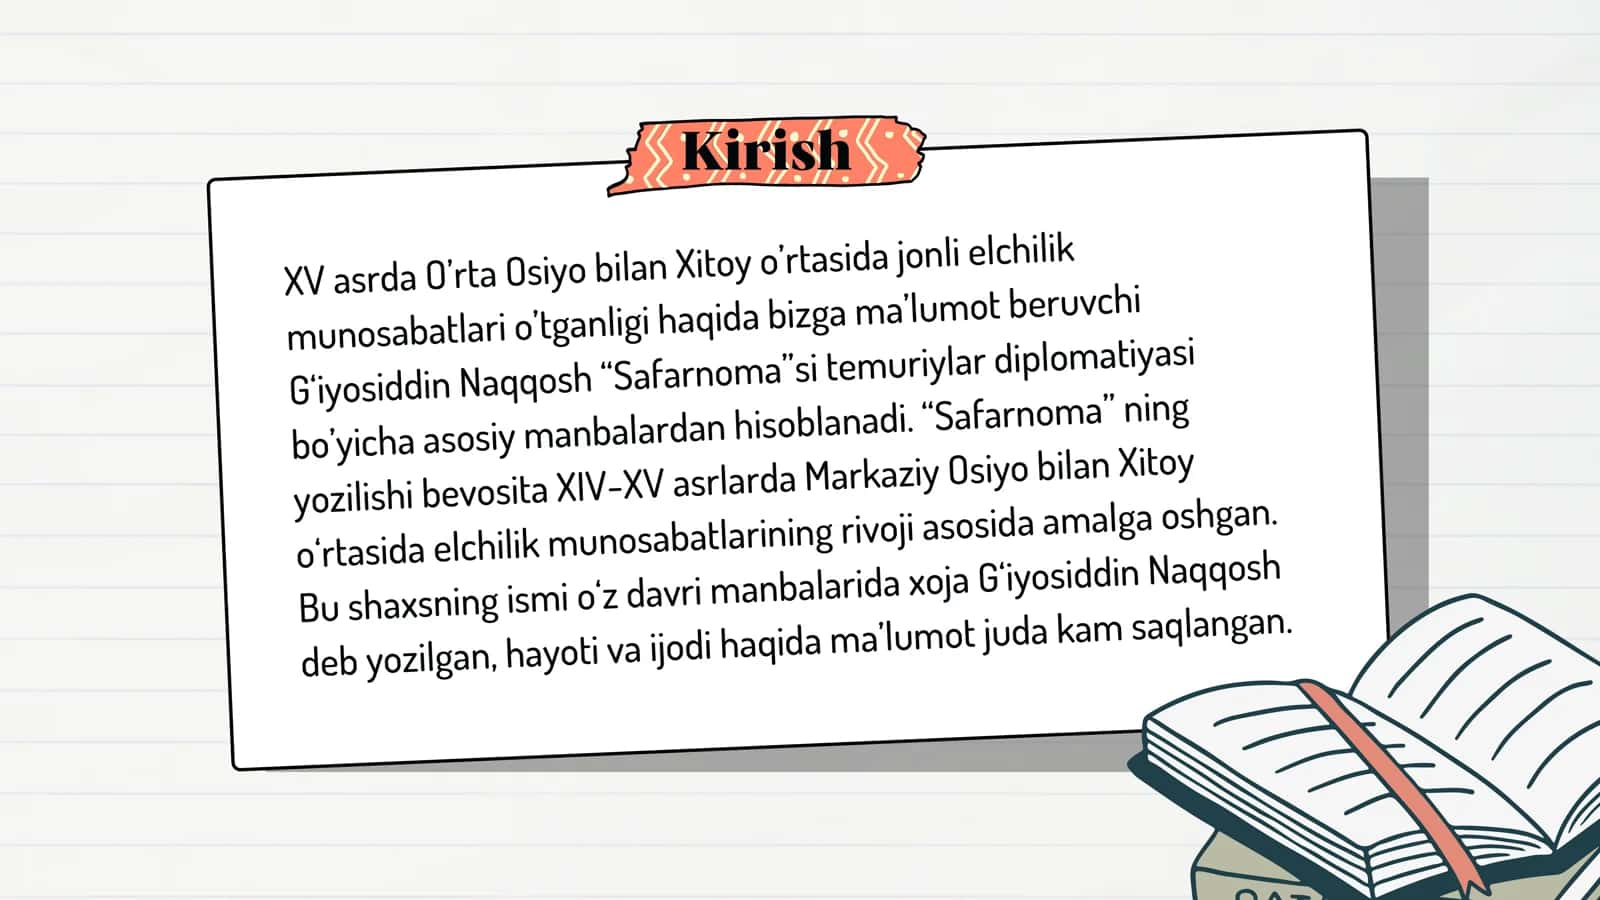 Kirish
XV asrda O’rta Osiyo bilan Xitoy o’rtasida jonli elchilik
munosabatlari o’tganligi haqida bizga ma’lumot beruvchi
G‘iyosiddin Naqqosh “Safarnoma”si temuriylar diplomatiyasi
bo’yicha asosiy manbalardan hisoblanadi. “Safarnoma” ning
yozilishi bevosita XIV-XV asrlarda Markaziy Osiyo bilan Xitoy
o‘rtasida elchilik munosabatlarining rivoji asosida amalga oshgan.
Bu shaxsning ismi o‘z davri manbalarida xoja G‘iyosiddin Naqqosh
deb yozilgan, hayoti va ijodi haqida ma’lumot juda kam saqlangan.